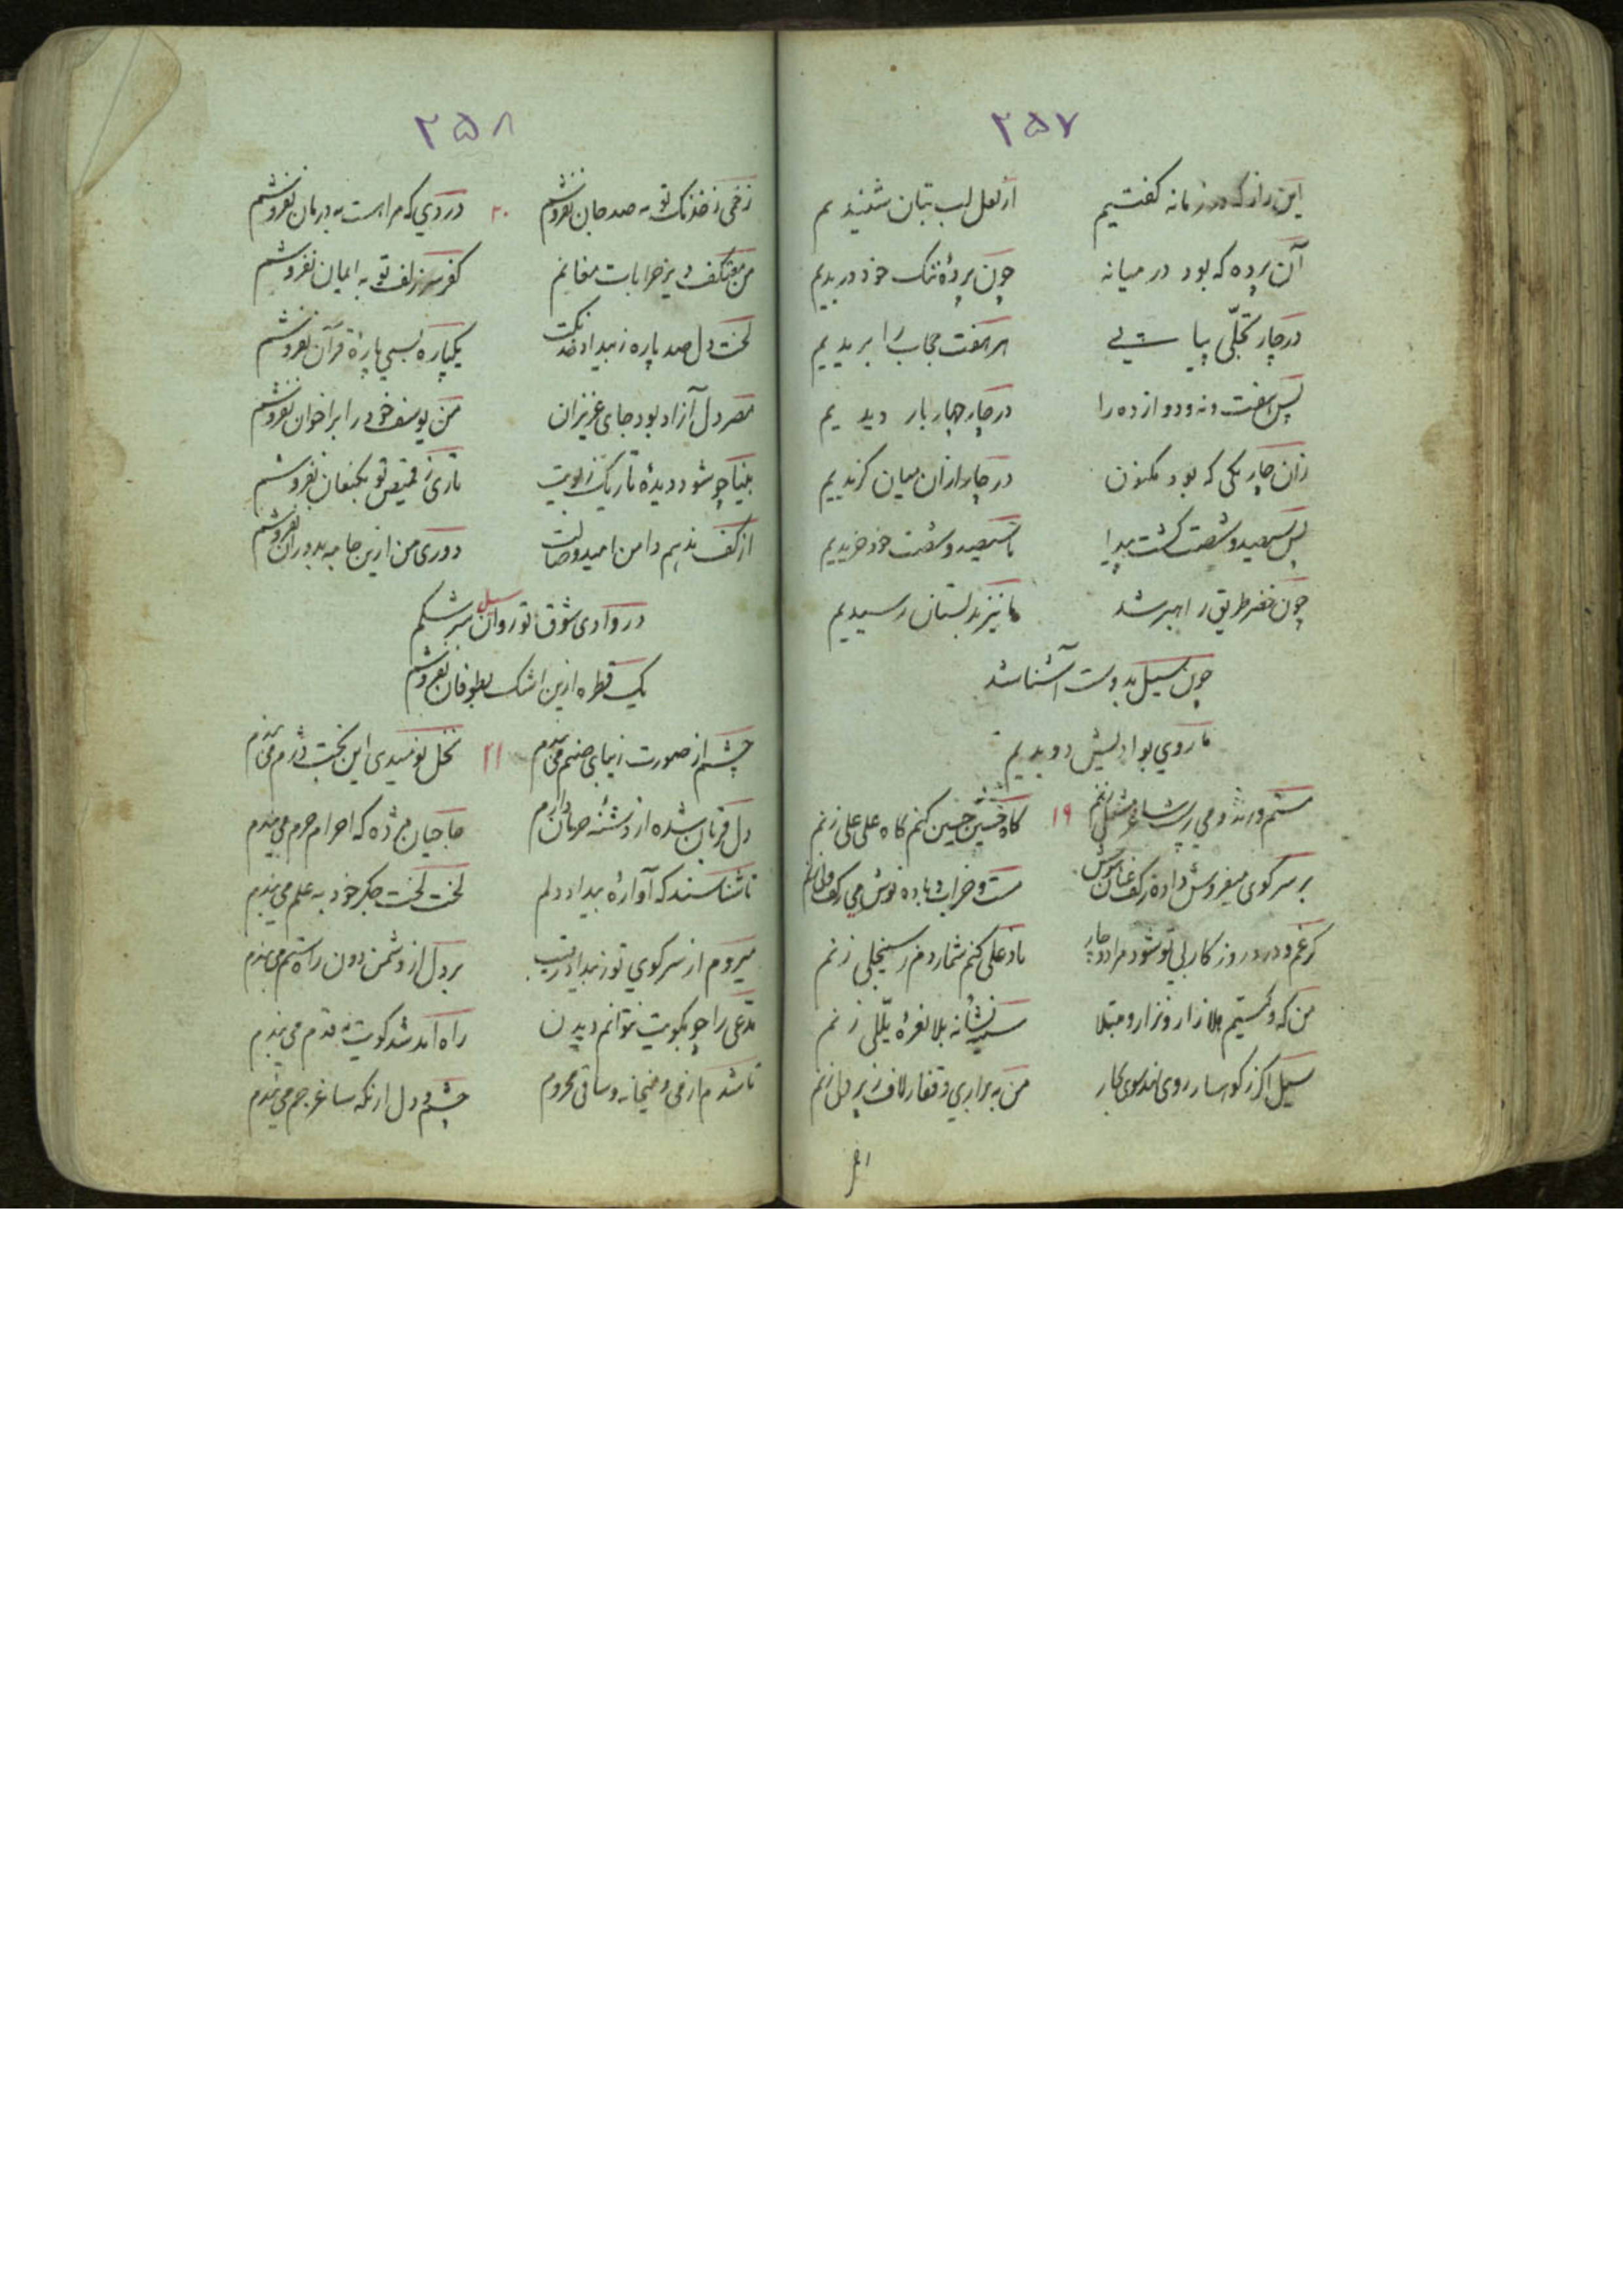 ۲۵۷
این راز که در زمانه گفتیم از لعل لب بتان شنیدیم
آن پرده که بود در میانه چون پردهٔ ننگ خود دریدیم
در چار تجلّی پیاپی هر هفت حجاب را بریدیم
پس هفت و نه و دوازده را در چار چهار بار دیدیم
زان چار یکی که بود مکنون در چار از آن میان گزیدیم
پس سیصد و شصت گشت پیدا با سیصد و شصت خود خریدیم
چون خضر طریق راهبر شد ما نیز بدلستان رسیدیم
چون سیل بدوست آشنا شد
ما روی بوادیش دویدیم
مستم و رند و می پرست ساغر زنم ۱۹ گاه حسین حسین کنم گاه علی علی زنم
بر سر کوی میفروش داده ز کف عنان هوش مست و خراب و باده نوش می ز کف زنم
گر غم و درد روزگار بی تو شود مرا دوچار ناد علی کنم شمار دم ز سینجلی زنم
من که و کیستیم هلا زار و نزار و مبتلا سینه نشانه بلا نعرهٔ یللی زنم
سیل اگر ز کوهسار روی نهد سوی بحار من به براری و قفار لاف ز پر دلی زنم
۲۵۸
زخمی ز خدنگ تو به صد جان نفروشم ۲۰ دردی که مرا هست به درمان نفروشم
من معتکف دیر خرابات مغانم کفر سر زلف تو به ایمان نفروشم
لخت دل صد پاره ز بیداد خدنگت یکپاره بسی پارهٔ قرآن نفروشم
مصر دل آزاد بود جای عزیزان من یوسف خود را براخوان نفروشم
بینا چو شود دیدهٔ تاریک ز بویت تاری ز قمیص تو بکنعان نفروشم
از کف ندهم دامن امید وصالت دوری من ازین جا به بدوران نفروشم
در وادی شوق تو روان سیل سرشکم
یک قطره ازین اشک بطوفان نفروشم
چشم از صورت زیبای صنم می بندم ۲۱ نخل نومیدی این بخت دژم می بندم
دل قربان شده از دشنه حرمان دارم حاجیان مژده که احرام حرم می بندم
تا شناسند که آوارهٔ بیداد دلم لخت لخت جگر خود به علم می بندم
میروم از سر کوی تو ز بیداد رقیب بر دل از دشمن دون راه ستم می بندم
مدّعی را چو بکویت نتوانم دیدن راه آمد شد کویت به قدم می بندم
تا شدم از می و میخانه و ساقی محروم چشم و دل از نگه ساغر جم می بندم